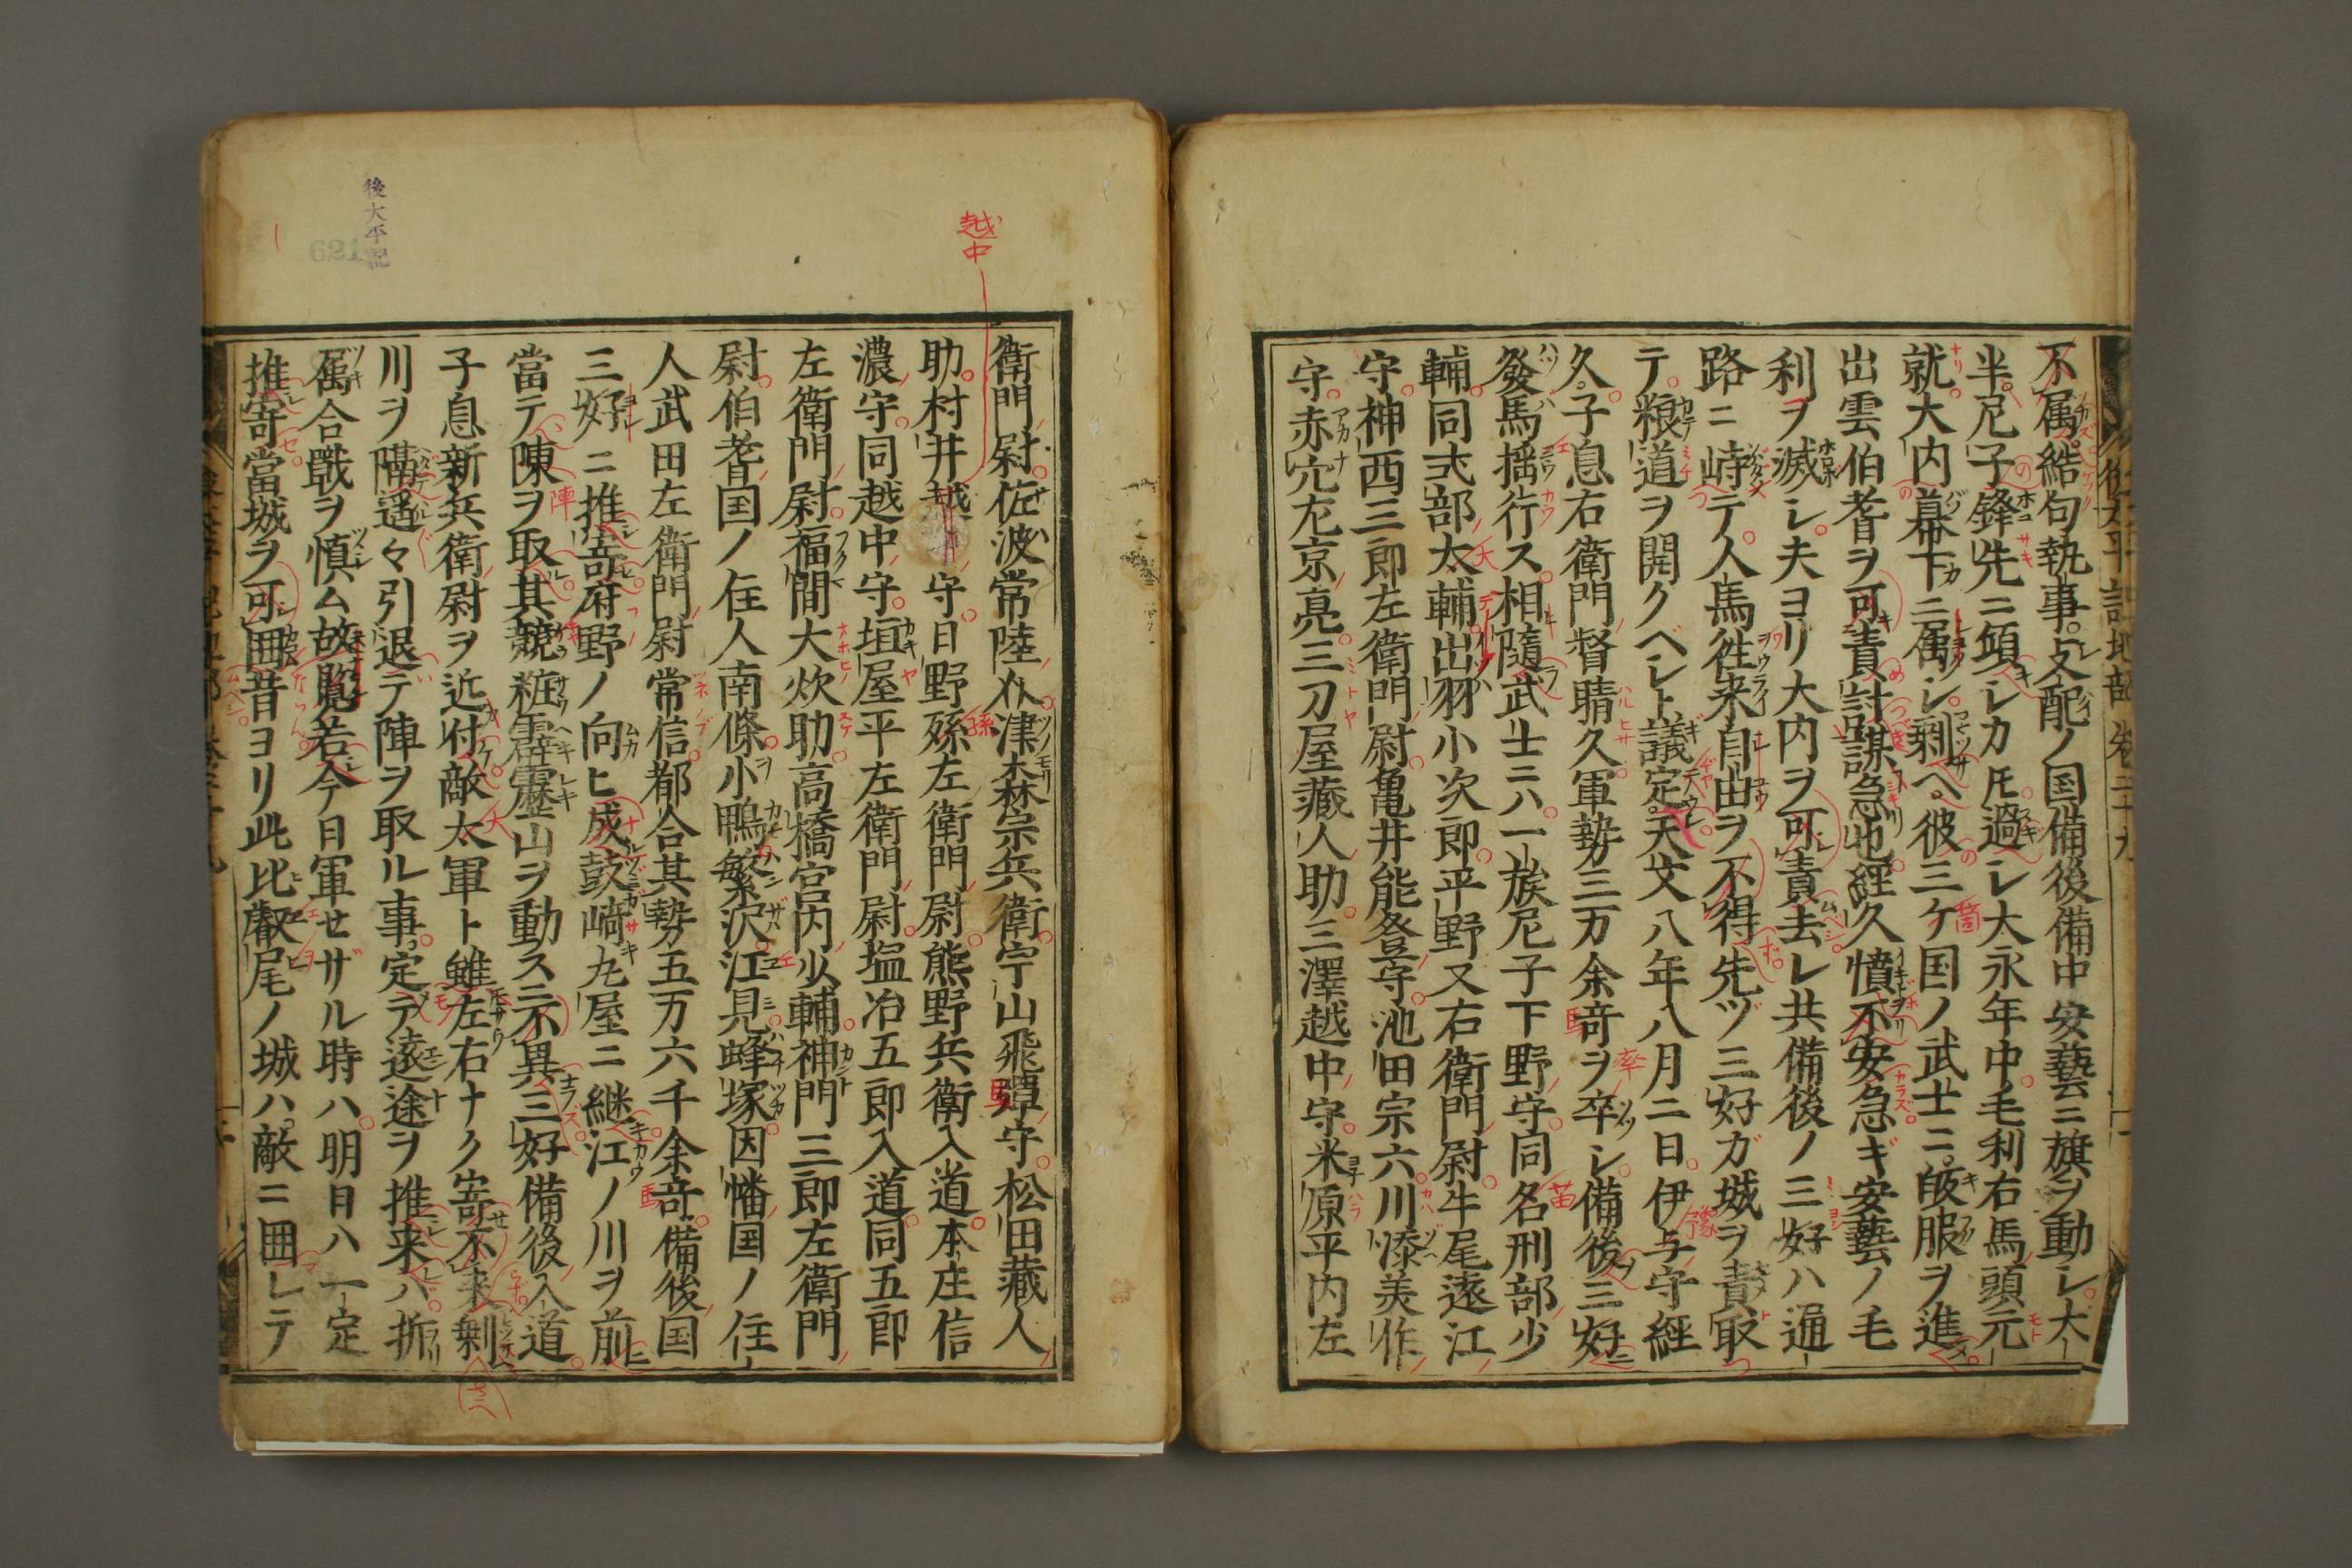 不属結句執事支配ノ国備後備中安藝ニ旗ヲ動シ大
半尼子鋒先ニ傾シカ𪜈過レ大永年中毛利右馬頭元
就大内幕下ニ属シ剰ヘ彼三ケ国ノ武士ニ皈服ヲ進
出雲伯耆ヲ可責討謀急也経久憤不安急ギ安藝ノ毛
利ヲ滅シ夫ヨリ大内ヲ可責去レ共備後ノ三好ハ通
路ニ峙テ人馬徃来自由ヲ不得先ヅ三好ガ城ヲ責取
テ粮道ヲ開クベシト議定天文八年八月二日伊与守経
久子息右衛門督晴久軍勢三万余竒ヲ卒シ備後三好
發馬揺行ス相隨武士ニハ一族尼子下野守同名刑部少
輔同式部太輔出羽小次郎平野又右衛門尉牛尾遠江
守神西三郎左衛門尉亀井能登守池田宗六川添美作
守赤穴左京亮三刀屋藏人助三澤越中守米原平内左
後太平記地部 巻三十九
越中
衛門尉佐波常陸介津森宗兵衛宍山飛騨守松田藏人
助村井越 守日野孫左衛門尉熊野兵衛入道本庄信
濃守同越中守垣屋平左衛門尉塩冶五郎入道同五郎
左衛門尉福間大炊助高橋宮内少輔神門三郎左衛門
尉伯耆国ノ住人南條小鴨繁沢江見蜂塚因幡国ノ住
人武田左衛門尉常信都合其勢五万六千余竒備後国
三好ニ推寄府野ノ向ヒ成鼓﨑丸屋ニ継江ノ川ヲ前
當テ陳ヲ取其競粧霹靂山ヲ動スニ不異三好備後入道
子息新兵衛尉ヲ近付敵太軍ト雖左右ナク寄不来剰
川ヲ隔遥々引退テ陣ヲ取ル事定テ遠途ヲ推来ハ折
属合戰ヲ慎ム故覧若今日軍セザル時ハ明日ハ一定
推寄當城ヲ可囲昔ヨリ此比叡尾ノ城ハ敵ニ囲レテ
後太平記
621